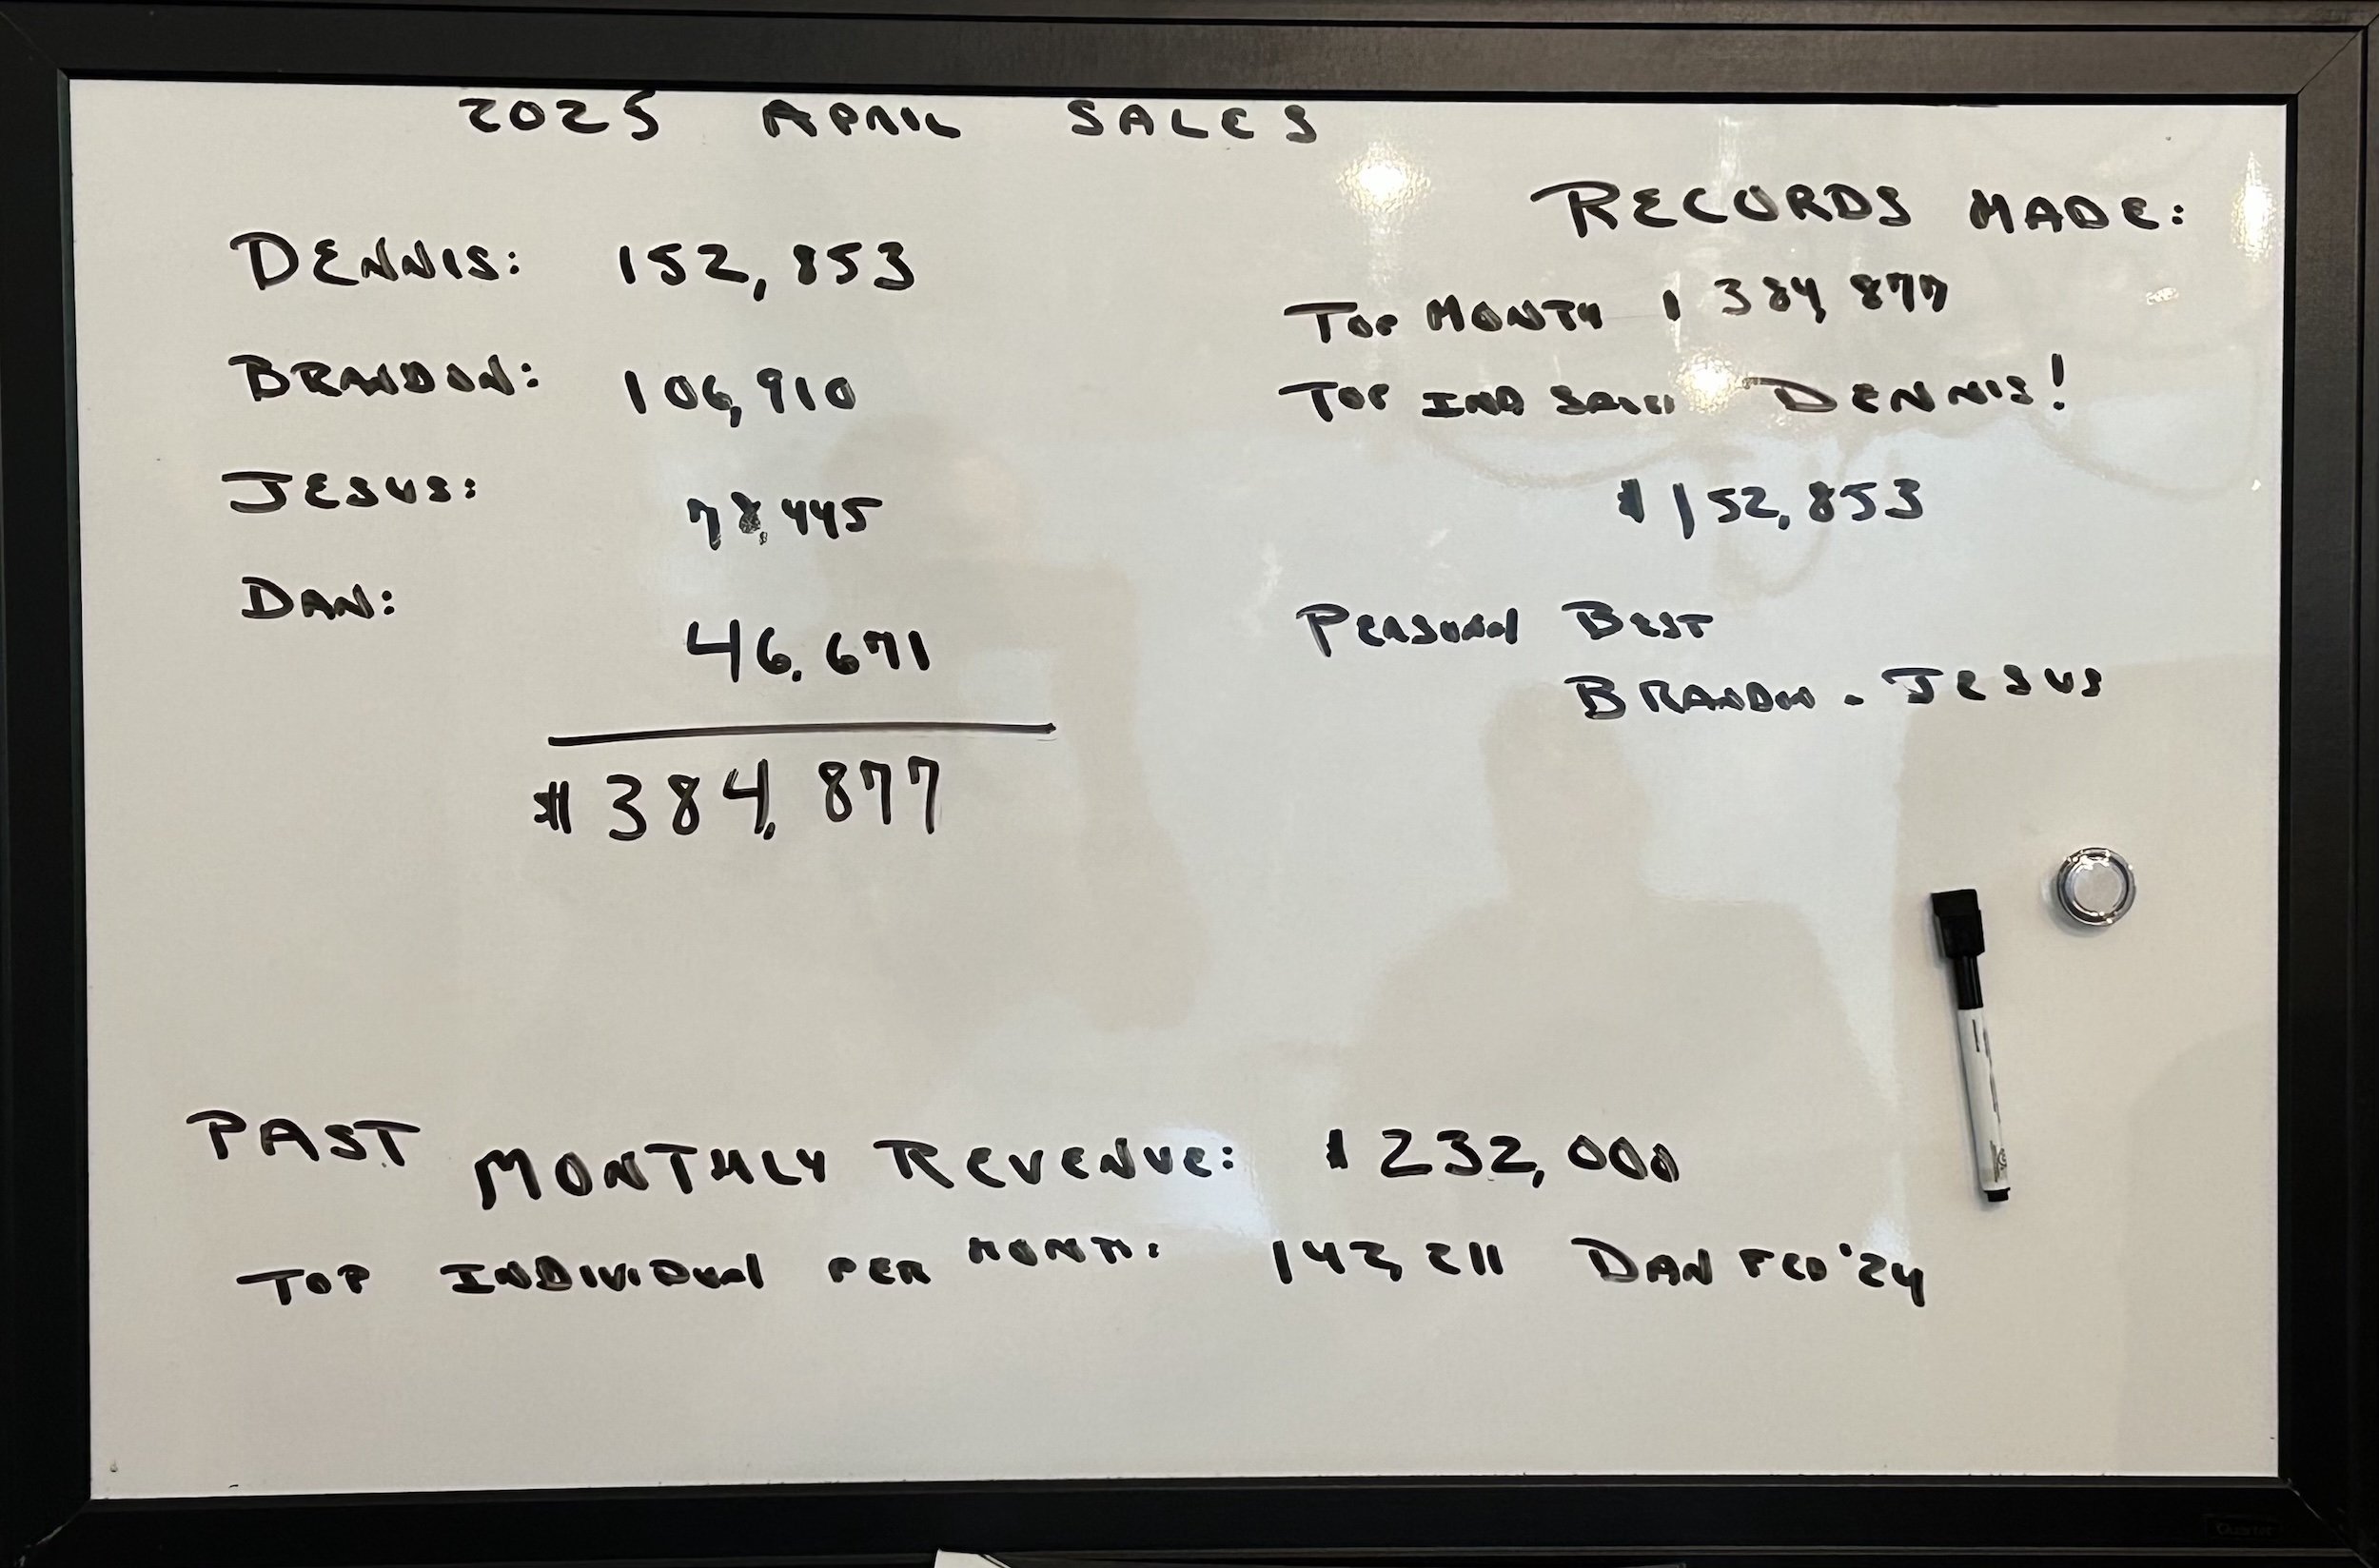 2025 APRIL SALES
DENNIS: 152,853
BRANDON: 106,910
JESUS: 78,445
DAN: 46,671
$384,877
RECORDS MADE:
TOP MONTH $384,877
TOP IND SALES DENNIS!
$152,853
PERSONAL BEST
BRANDON - JESUS
PAST MONTHLY REVENUE: $232,000
TOP INDIVIDUAL PER MONTH: 142,211 DAN FEB '24